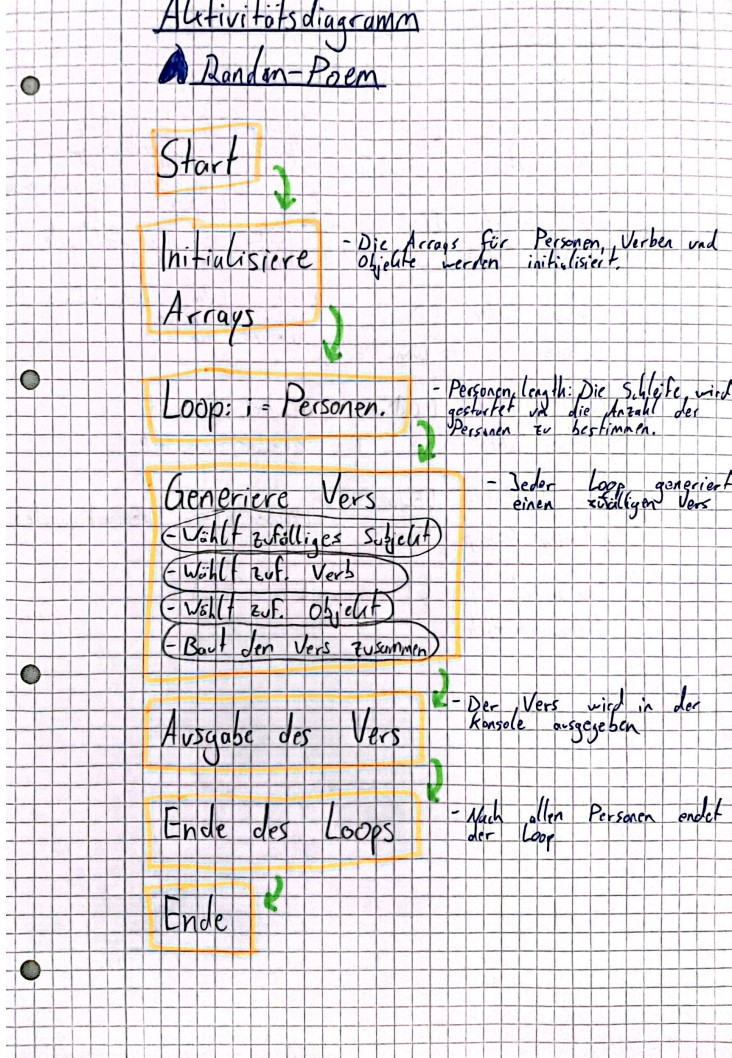 Aktivitätsdiagramm
Random-Poem
Start
Initialisiere
Arrays
- Die Arrays für Personen, Verben und
Objekte werden initialisiert.
Loop: i = Personen.
- Personen.length: Die Schleife wird
gestartet und die Anzahl der
Personen zu bestimmen.
Generiere Vers
- Jeder Loop generiert
einen zufälligen Vers
- Wählt zufälliges Subjekt
- Wählt zuf. Verb
- Wählt zuf. Objekt
- Baut den Vers zusammen
Ausgabe des Vers
- Der Vers wird in der
Konsole ausgegeben
Ende des Loops
- Nach allen Personen endet
der Loop
Ende